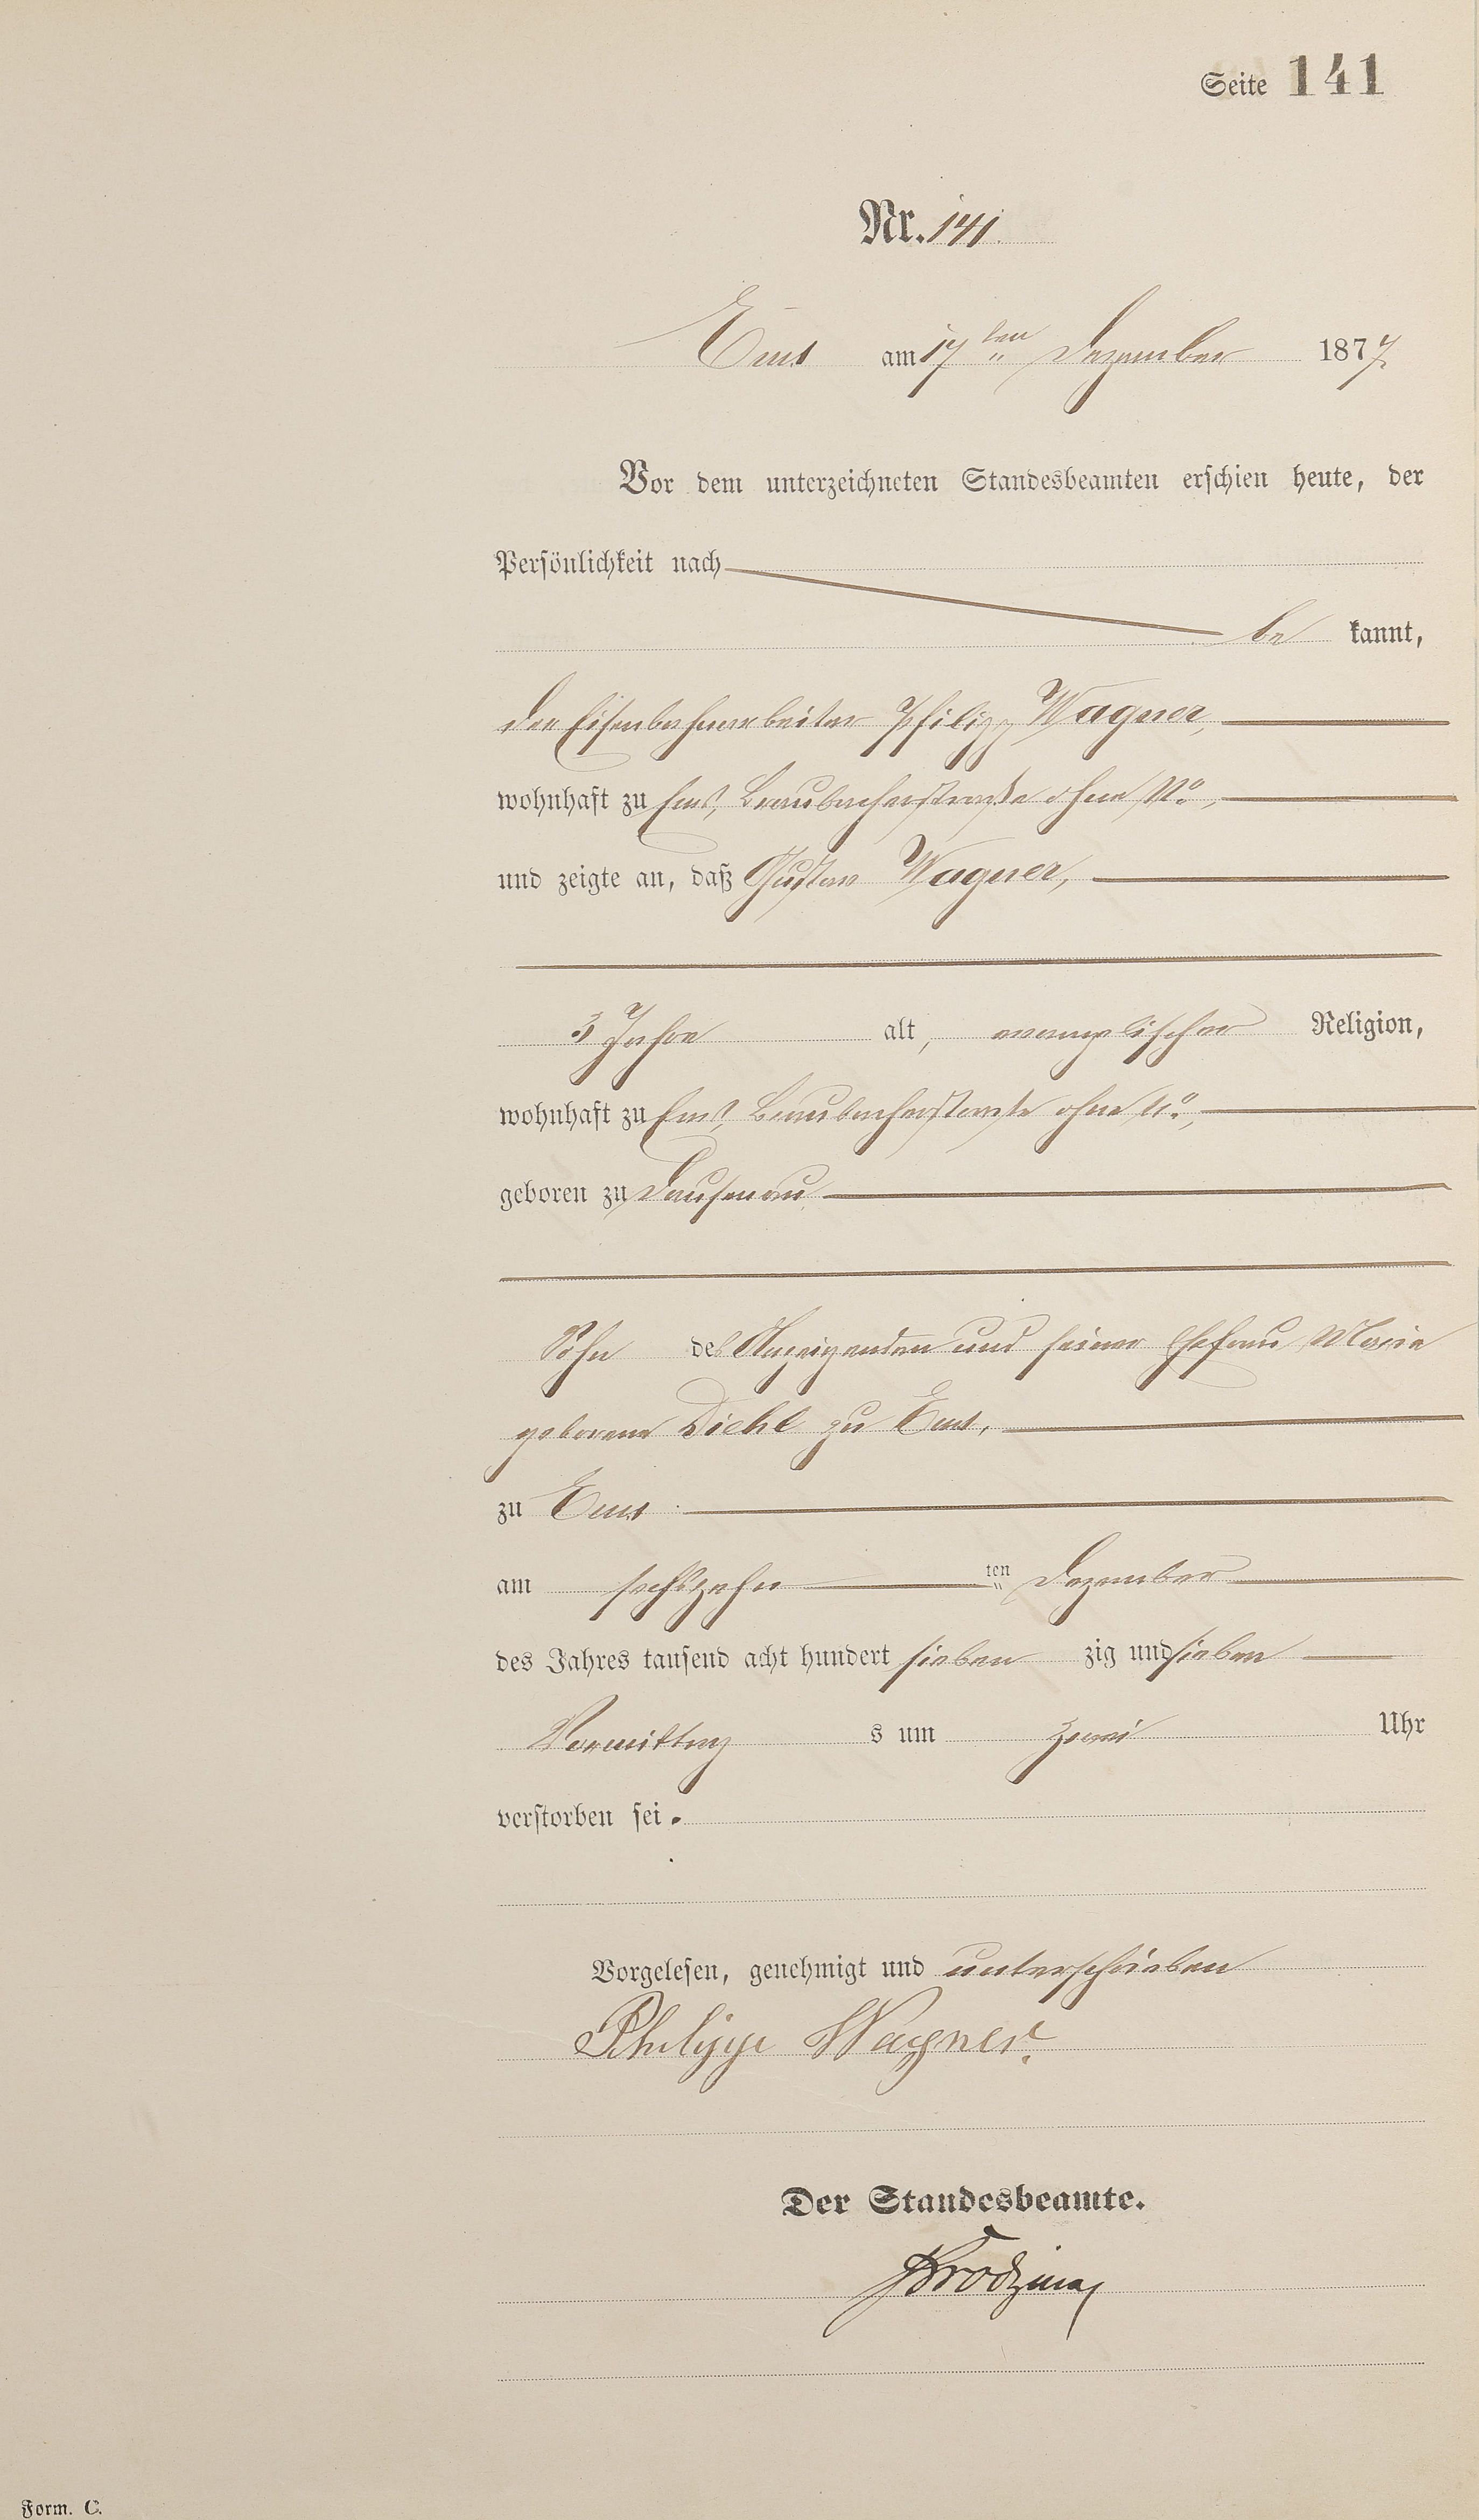 Seite 141
Nr. 141.
Ems am 17ten Dezember 1877.
Vor dem unterzeichneten Standesbeamten erschien heute, der
Persönlichkeit nach
be kannt,
der Eisenbahnarbeiter Philipp Wagner,
wohnhaft zu Ems, Braubacherstraße ohne No.,
und zeigte an, daß Gustav Wagner,
3 Jahre alt, evangelischer Religion,
wohnhaft zu Ems, Braubacherstraße ohne No.,
geboren zu Dausenau
Sohn des Anzeigenden und seiner Ehefrau Marie
geborene Diehl zu Ems,
zu Ems
am sechszehn ten Dezember
des Jahres tausend acht hundert sieben zig und sieben
Vormittag s um zwei Uhr
verstorben sei.
Vorgelesen, genehmigt und unterschrieben
Philipp Wagner.
Der Standesbeamte.
Form. C.